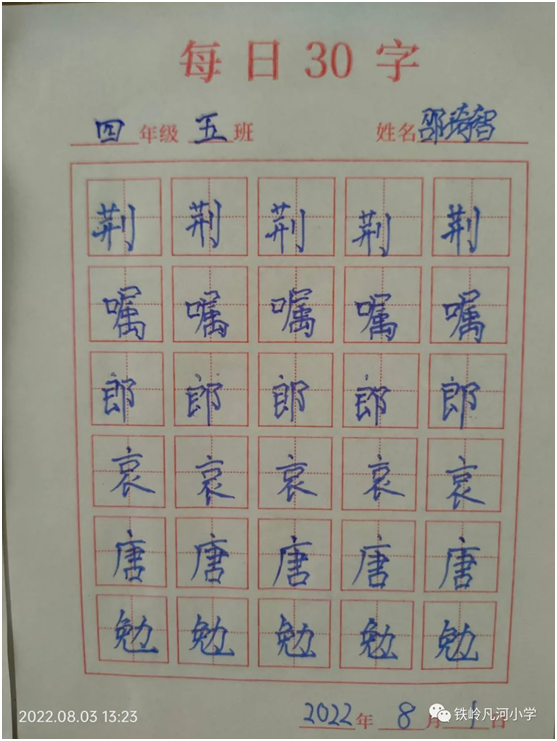 每日30字
四年级五班 姓名邵琦智
荆荆荆荆荆
嘱嘱嘱嘱嘱
郎郎郎郎郎
哀哀哀哀哀
唐唐唐唐唐
勉勉勉勉勉
2022年8月1日
2022.08.03 13:23
铁岭凡河小学